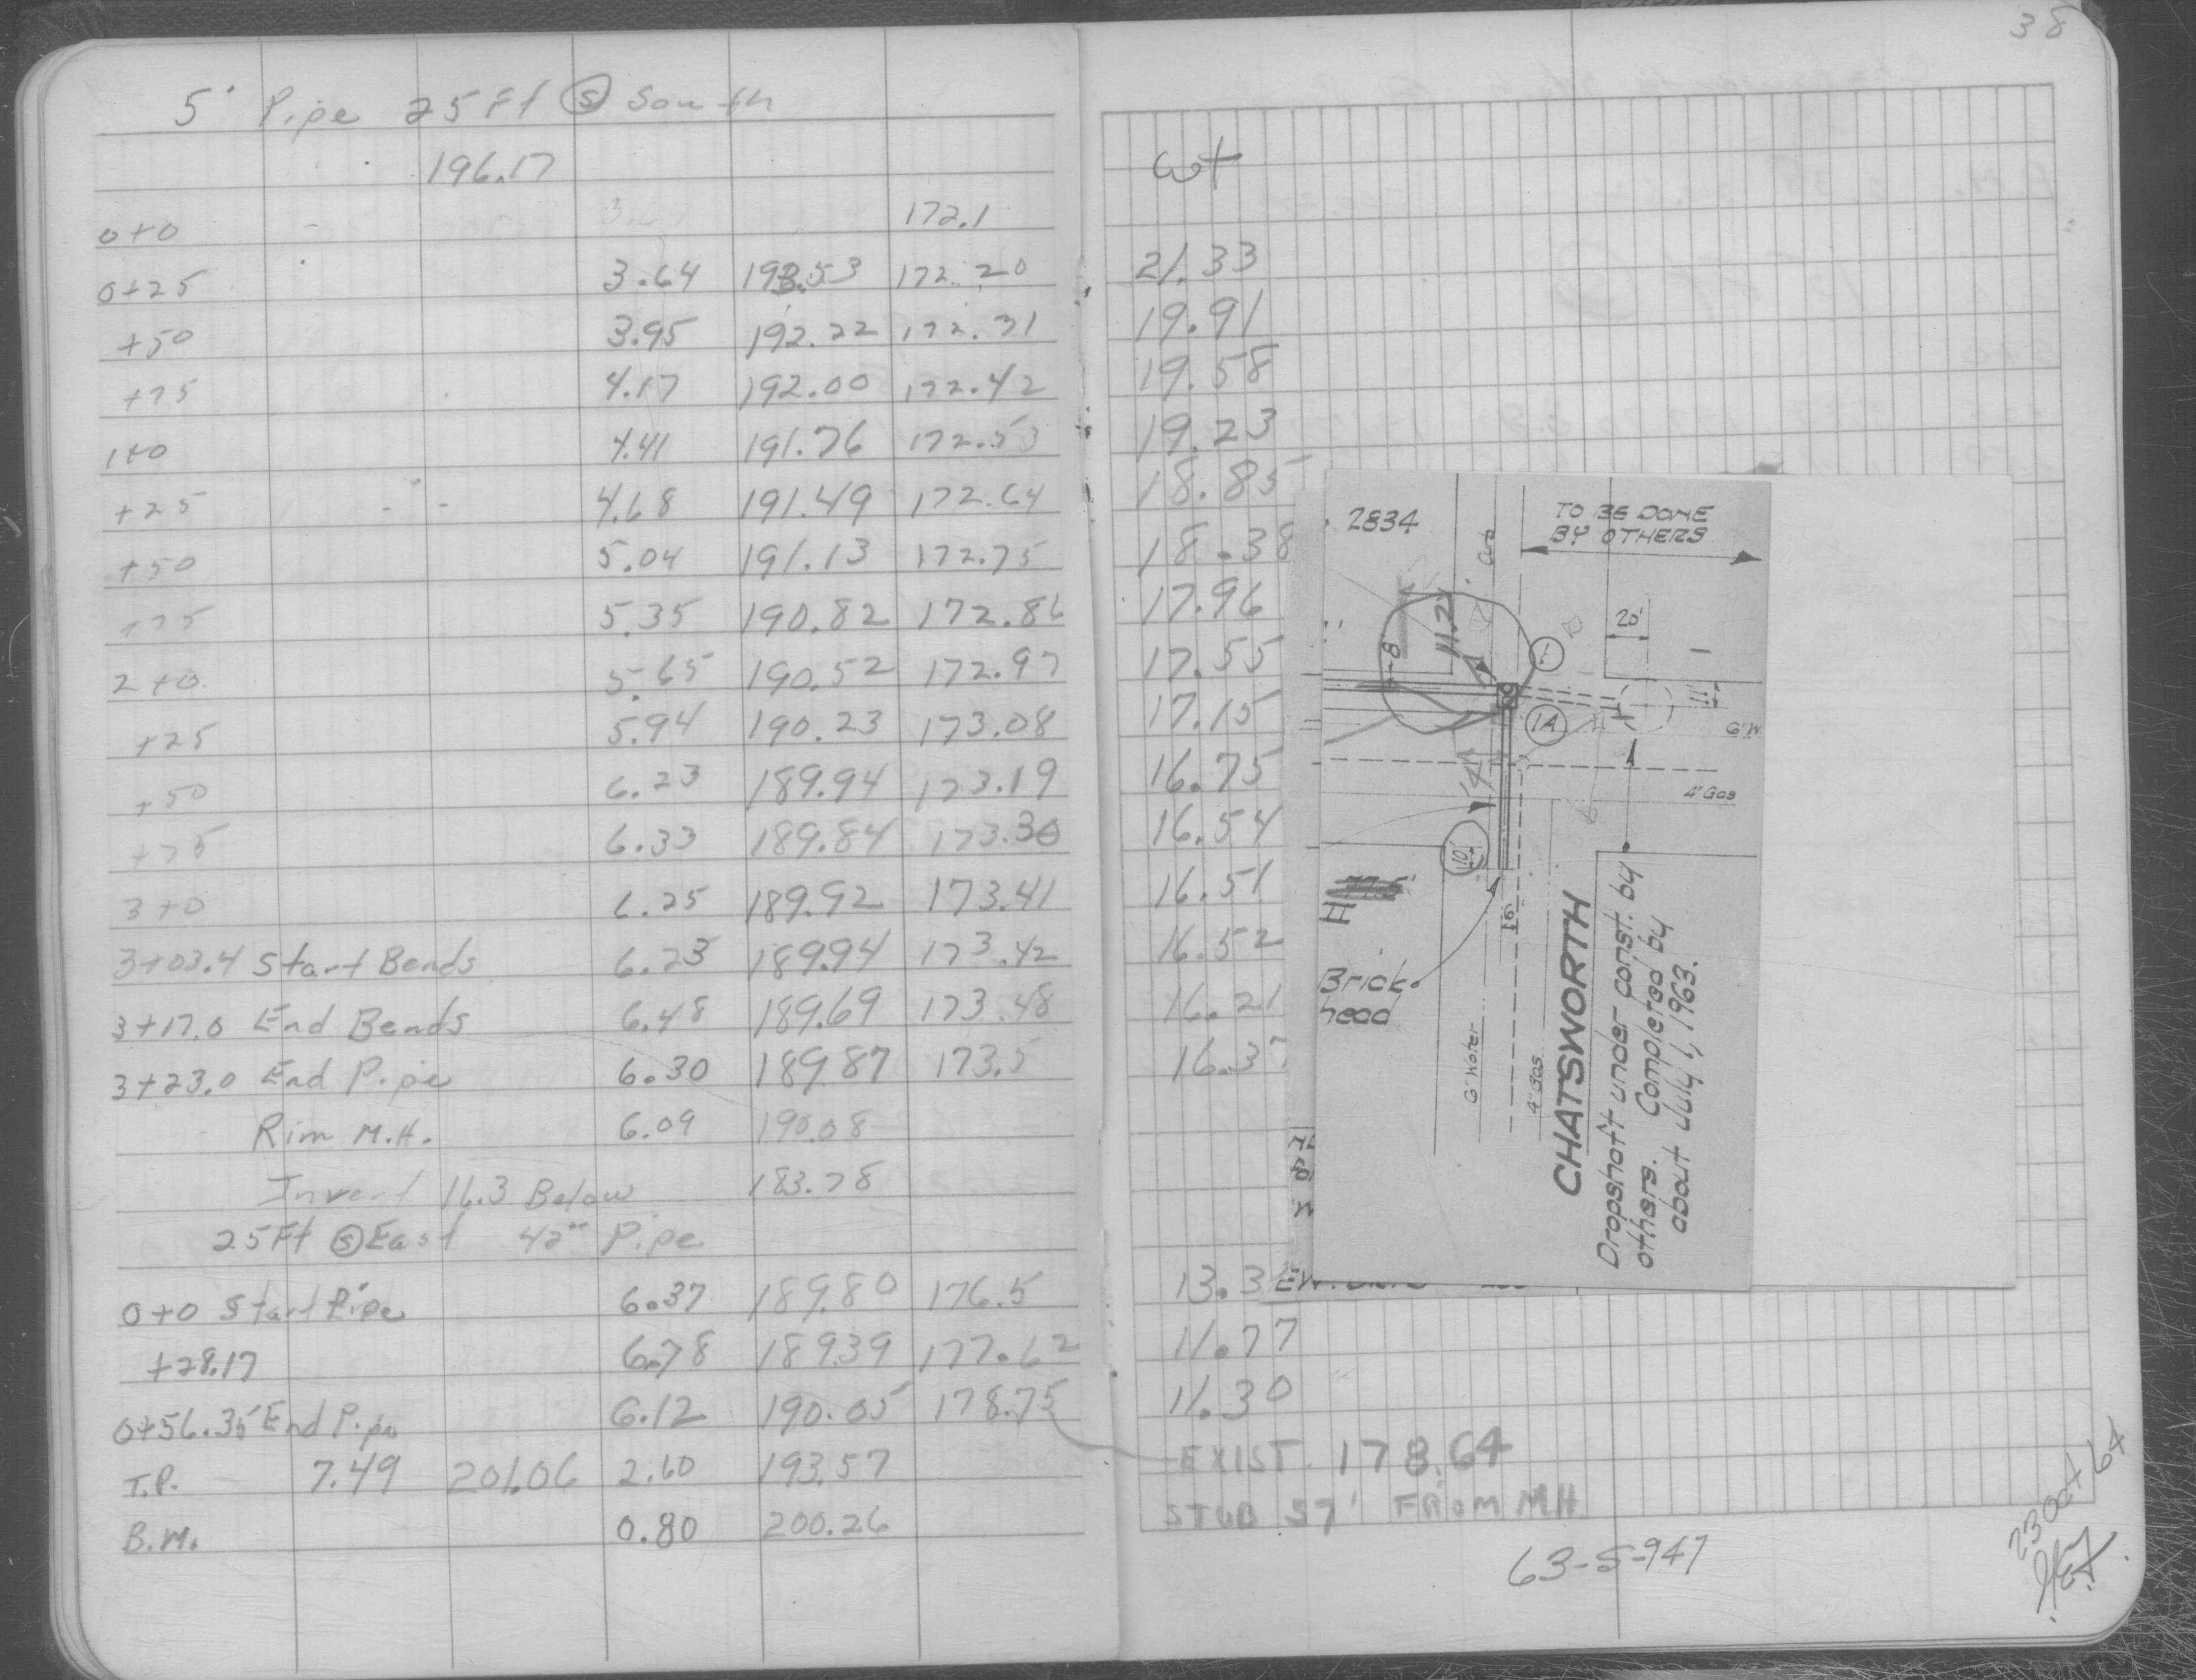 38
5' Pipe 25 Ft Ⓢ South
196.17 Cut
0+0 172.1
0+25 3.64 193.53 172.20 21.33
+50 3.95 192.22 172.31 19.91
+75 4.17 192.00 172.42 19.58
1+0 4.41 191.76 172.53 19.23
+25 4.68 191.49 172.64 18.85
+50 5.04 191.13 172.75 18.38
+75 5.35 190.82 172.86 17.96
2+0 5.65 190.52 172.97 17.55
+25 5.94 190.23 173.08 17.15
+50 6.23 189.94 173.19 16.75
+75 6.33 189.84 173.30 16.54
3+0 6.25 189.92 173.41 16.51
3+03.4 Start Bends 6.23 189.94 173.42 16.52
3+17.0 End Bends 6.48 189.69 173.48 16.21
3+23.0 End Pipe 6.30 189.87 173.5 16.37
Rim M.H. 6.09 190.08
Invert 16.3 Below 183.78
25 Ft Ⓢ East 42" Pipe
0+0 Start Pipe 6.37 189.80 176.5 13.3
+28.17 6.78 189.39 177.62 11.77
0+56.35 End Pipe 6.12 190.05 178.75 11.30
T.P. 7.49 201.06 2.60 193.57
B.M. 0.80 200.26
EXIST. 178.64
STUB 57' FROM MH
63-S-947
23 Oct 64
2834
TO BE DONE
BY OTHERS
Curb
11.2'
8'
20'
1
11'
1A
6" W
4" Gas
14'
10'
77.5'
II
Brick-
head
6" Water
4" Gas
CHATSWORTH
Dropshaft under const. by
others. Completed by
about July 1, 1963.